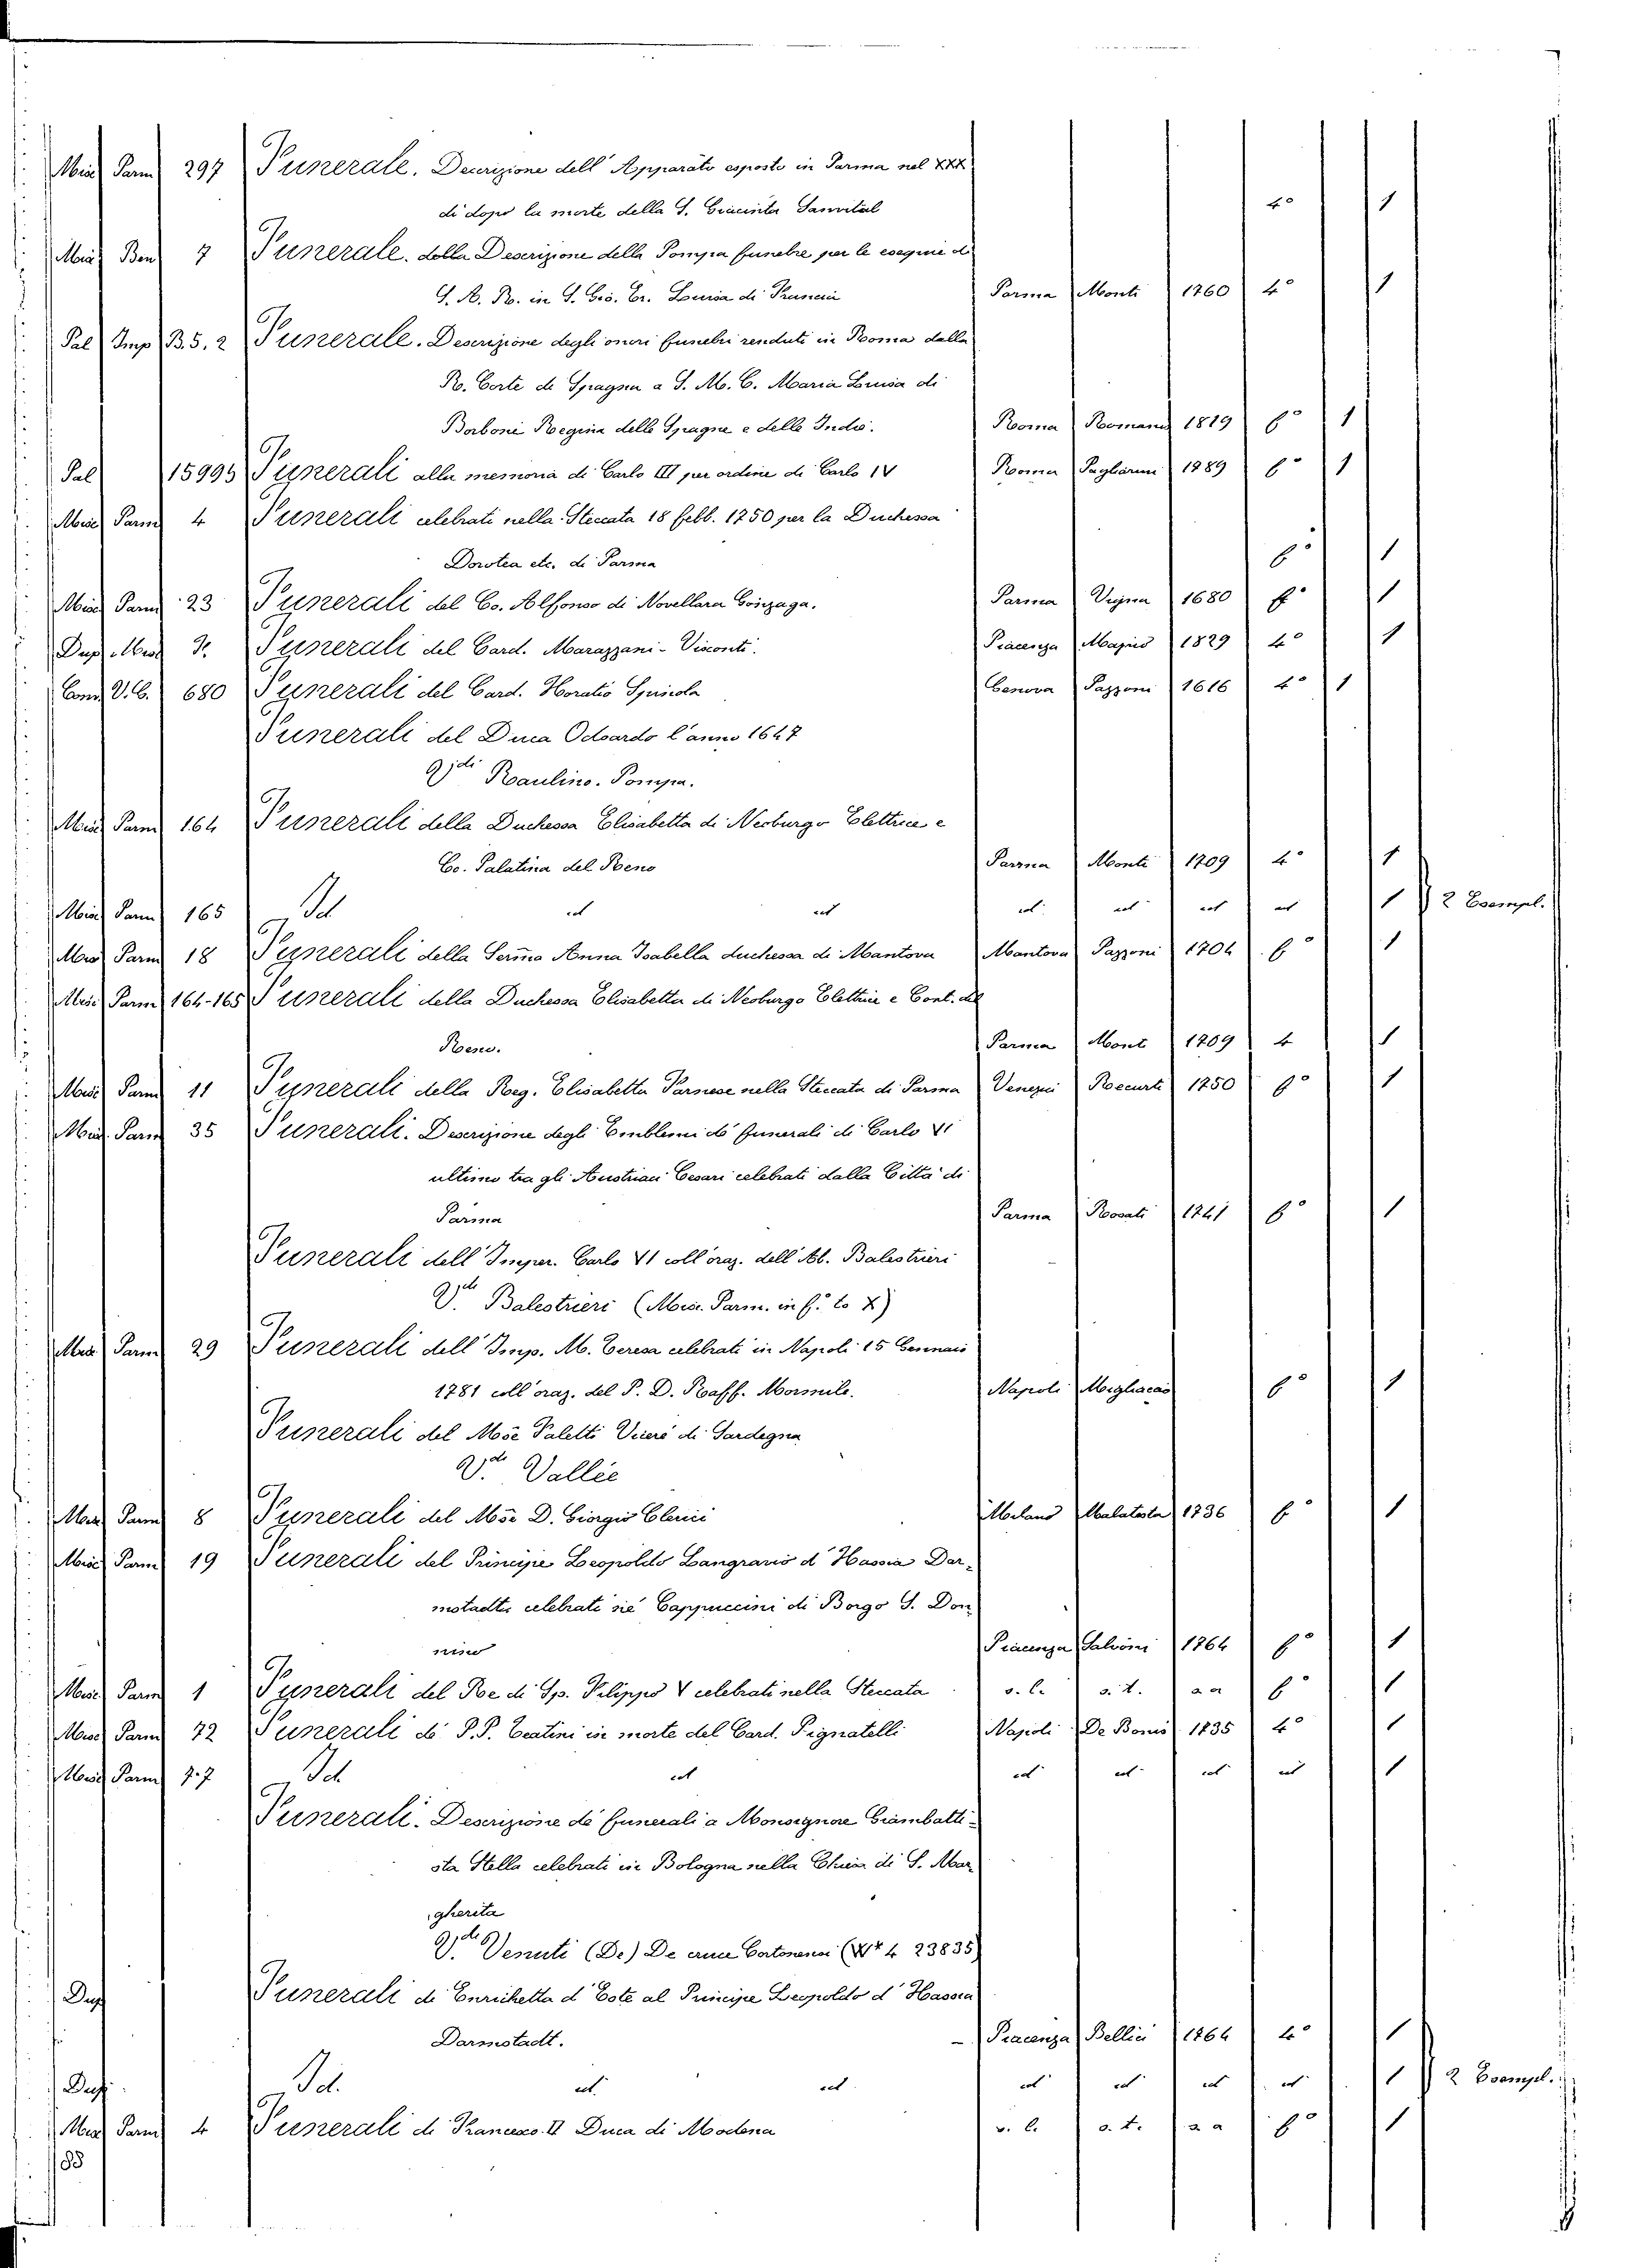 Misc Parm 297 Funerale. Descrizione dell' Apparato esposto in Parma nel XXX
di dopo la morte della S. Giacinta Sanvital 4° 1
Misc Ben 7 Funerale. della Descrizione della Pompa funebre per le esequie di
S. A. R. in S. Gio. Ev. Luisa di Francia Parma Monti 1760 4° 1
Pal Imp B.5.2 Funerale. Descrizione degli onori funebri renduti in Roma dalla
R. Corte di Spagna a S. M. C. Maria Luisa di
Borboni Regina delle Spagne e delle Indie. Roma Romanis 1819 f° 1
Pal 15995 Funerali alla memoria di Carlo III per ordine di Carlo IV Roma Pagliarini 1789 f° 1
Misc Parm 4 Funerali celebrati nella Steccata 18 febb. 1750 per la Duchessa
Dorotea etc. di Parma f° 1
Misc Parm 23 Funerali del Co. Alfonso di Novellara Gonzaga. Parma Vigna 1680 f° 1
Dup. Misc Funerali del Card. Marazzani-Visconti. Piacenza Majno 1829 4° 1
Conv V. C. 680 Funerali del Card. Horatio Spinola Genova Pazzoni 1616 4° 1
Funerali del Duca Odoardo l'anno 1647
Vdi Raulino. Pompa.
Misc Parm 164 Funerali della Duchessa Elisabetta di Neoburgo Elettrice e
Co. Palatina del Reno Parma Monti 1709 4° 1
Misc Parm 165 Id id id id id id id 1 2 Esempl.
Misc Parm 18 Funerali della Serma Anna Isabella duchessa di Mantova Mantova Pazzoni 1704 f° 1
Misc Parm 164-165 Funerali della Duchessa Elisabetta di Neoburgo Elettrice e Cont. del
Reno. Parma Mont 1709 4 1
Misc Parm 11 Funerali della Reg. Elisabetta Farnese nella Steccata di Parma Venezia Recurti 1750 f° 1
Misc. Parm 35 Funerali. Descrizione degli Emblemi de' funerali di Carlo VI
ultimo tra gli Austriaci Cesari celebrati dalla Città di
Parma Parma Rosati 1741 f° 1
Funerali dell' Imper. Carlo VI coll' oraz. dell' Ab. Balestrieri
Vdi Balestrieri (Misc. Parm. in f.° to X)
Misc Parm 29 Funerali dell' Imp. M. Teresa celebrati in Napoli 15 Gennaio
1781 coll' oraz. del P. D. Raff. Mormile. Napoli Migliacao f° 1
Funerali del Mse Paletti Vicerè di Sardegna
Vdi Vallée
Misc Parm 8 Funerali del Mse D. Giorgio Clerici Milano Malatesta 1736 f° 1
Misc Parm 19 Funerali del Principe Leopoldo Langravio d' Hassia Dar-
mstadt, celebrati ne' Cappuccini di Borgo S. Don
nino Piacenza Salvoni 1764 f° 1
Misc Parm 1 Funerali del Re di Sp. Filippo V celebrati nella Steccata s. l. s. t. s a f° 1
Misc Parm 72 Funerali de' P.P. Teatini in morte del Card. Pignatelli Napoli De Bonis 1735 4° 1
Misc Parm Id id id id id id 1
Funerali. Descrizione de' funerali a Monsignore Giambatti-
sta Stella celebrati in Bologna nella Chiesa di S. Mar-
gherita
Vdi Venuti (De) De cruce Cortonensi 4 23835)
Dup Funerali di Enrichetta d' Este al Principe Leopoldo d' Hassia
Darmstadt. - Piacenza Bellici 1764 4° 1
Dup. Id. id. id id id id id 1 2 Esempl.
Misc Parm 4 Funerali di Francesco II Duca di Modena s. l. s. t. s a f° 1